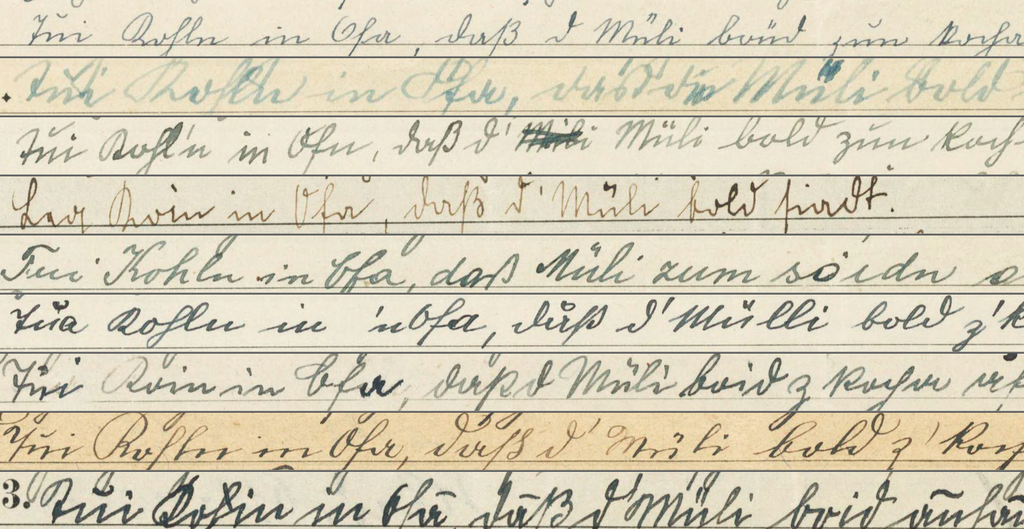 Tüi Kohln in Ofa, daß d Müli boüd zun kocha
Tüi Kohln in Ofa, das d Müli bold
Tüi Kohl'n in Ofn, daß d' Müli bold zun koch
Leg Koin in Ofa, daß d' Müli bold siadt.
Tui Kohln in Ofa, daß Müli zum
Tüa Kohln in 'n Ofa, daß d' Mülli bold z'k
Tüi Koin in Ofa, daß d Müli boid z kocha
Tüi Kohln in Ofa, daß d' Müli bold z' koch
3. Tüi Kohin in Ofa, daß d' Müli boid